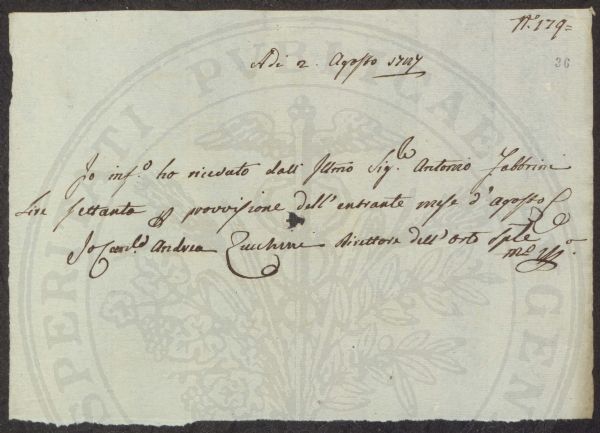 N.° 179=
36
Adi 2. Agosto
Io inf.o ho ricevuto dall' Illmo Sig.re Antonio Fabbrini
Lire settanta p provvisione dell' entrante mese d'Agosto
Io Andrea Zucchini Direttore dell' Orto Sple
mo pp.o
PROSPERITATI PUBLICAE AUGENDAE